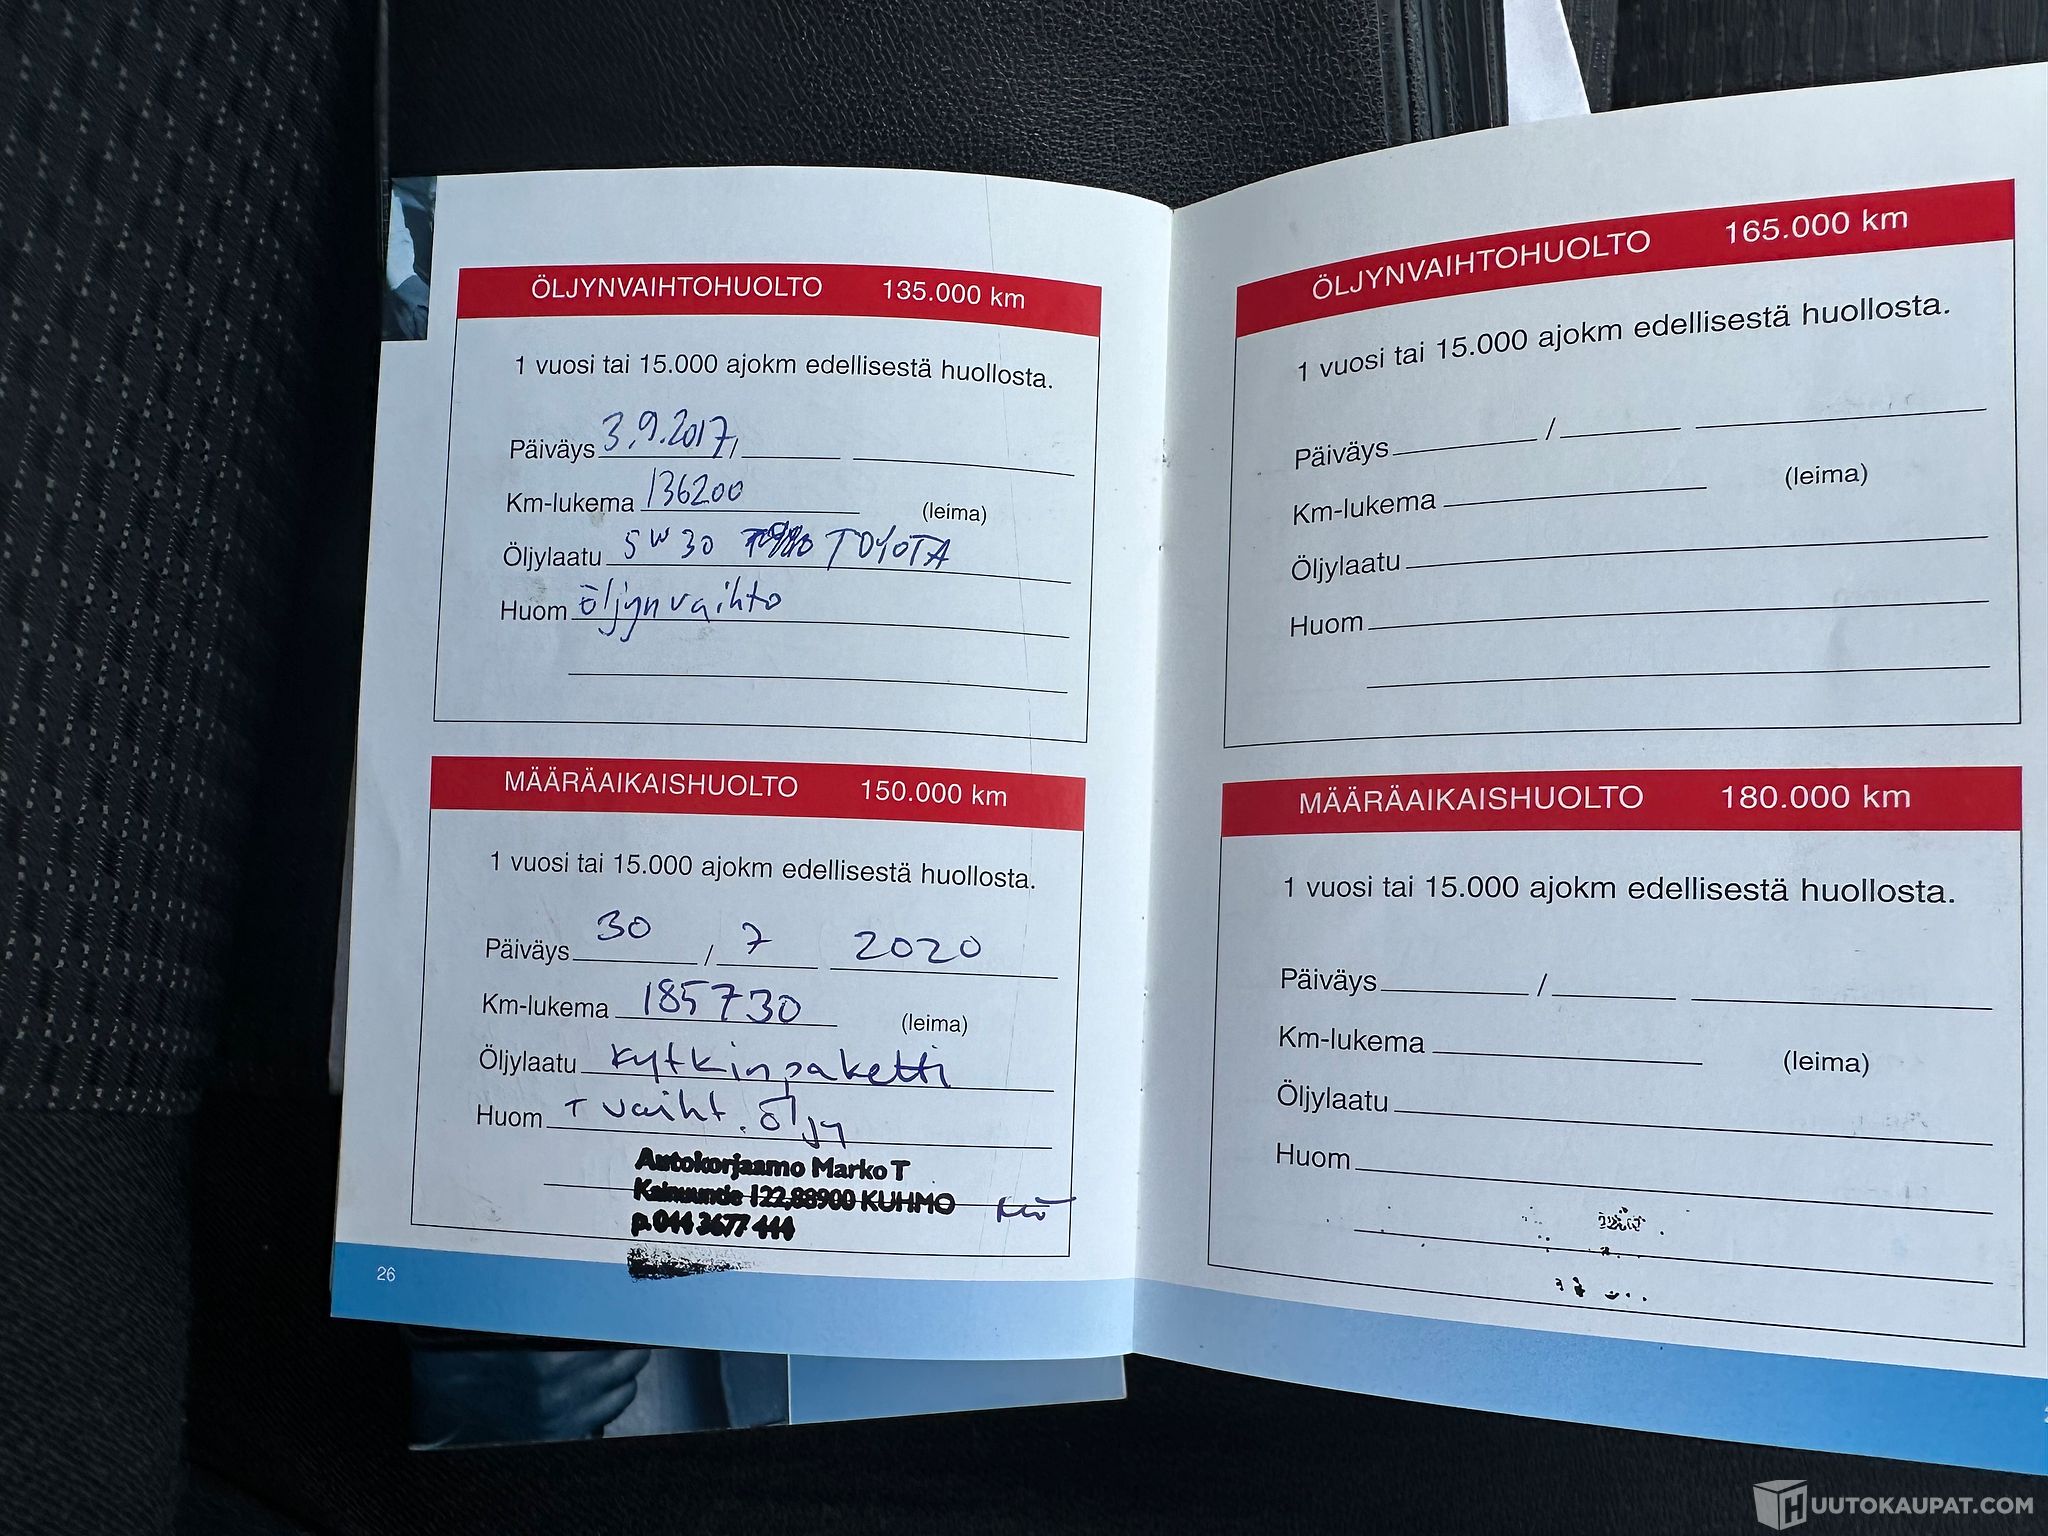 ÖLJYNVAIHTOHUOLTO 135.000 km
1 vuosi tai 15.000 ajokm edellisestä huollosta.
Päiväys 3.9.2017,
Km-lukema 136200 (leima)
Öljylaatu 5W30 TOYOTA
Huom öljynvaihto
MÄÄRÄAIKAISHUOLTO 150.000 km
1 vuosi tai 15.000 ajokm edellisestä huollosta.
Päiväys 30 / 7 2020
Km-lukema 185730 (leima)
Öljylaatu kytkinpaketti
Huom + vaiht. öljy
Autokorjaamo Marko T
122,88900 KUHMO
p.044 3677 444
26
ÖLJYNVAIHTOHUOLTO 165.000 km
1 vuosi tai 15.000 ajokm edellisestä huollosta.
Päiväys /
(leima)
Km-lukema
Öljylaatu
Huom
MÄÄRÄAIKAISHUOLTO 180.000 km
1 vuosi tai 15.000 ajokm edellisestä huollosta.
Päiväys /
Km-lukema (leima)
Öljylaatu
Huom
HUUTOKAUPAT.COM